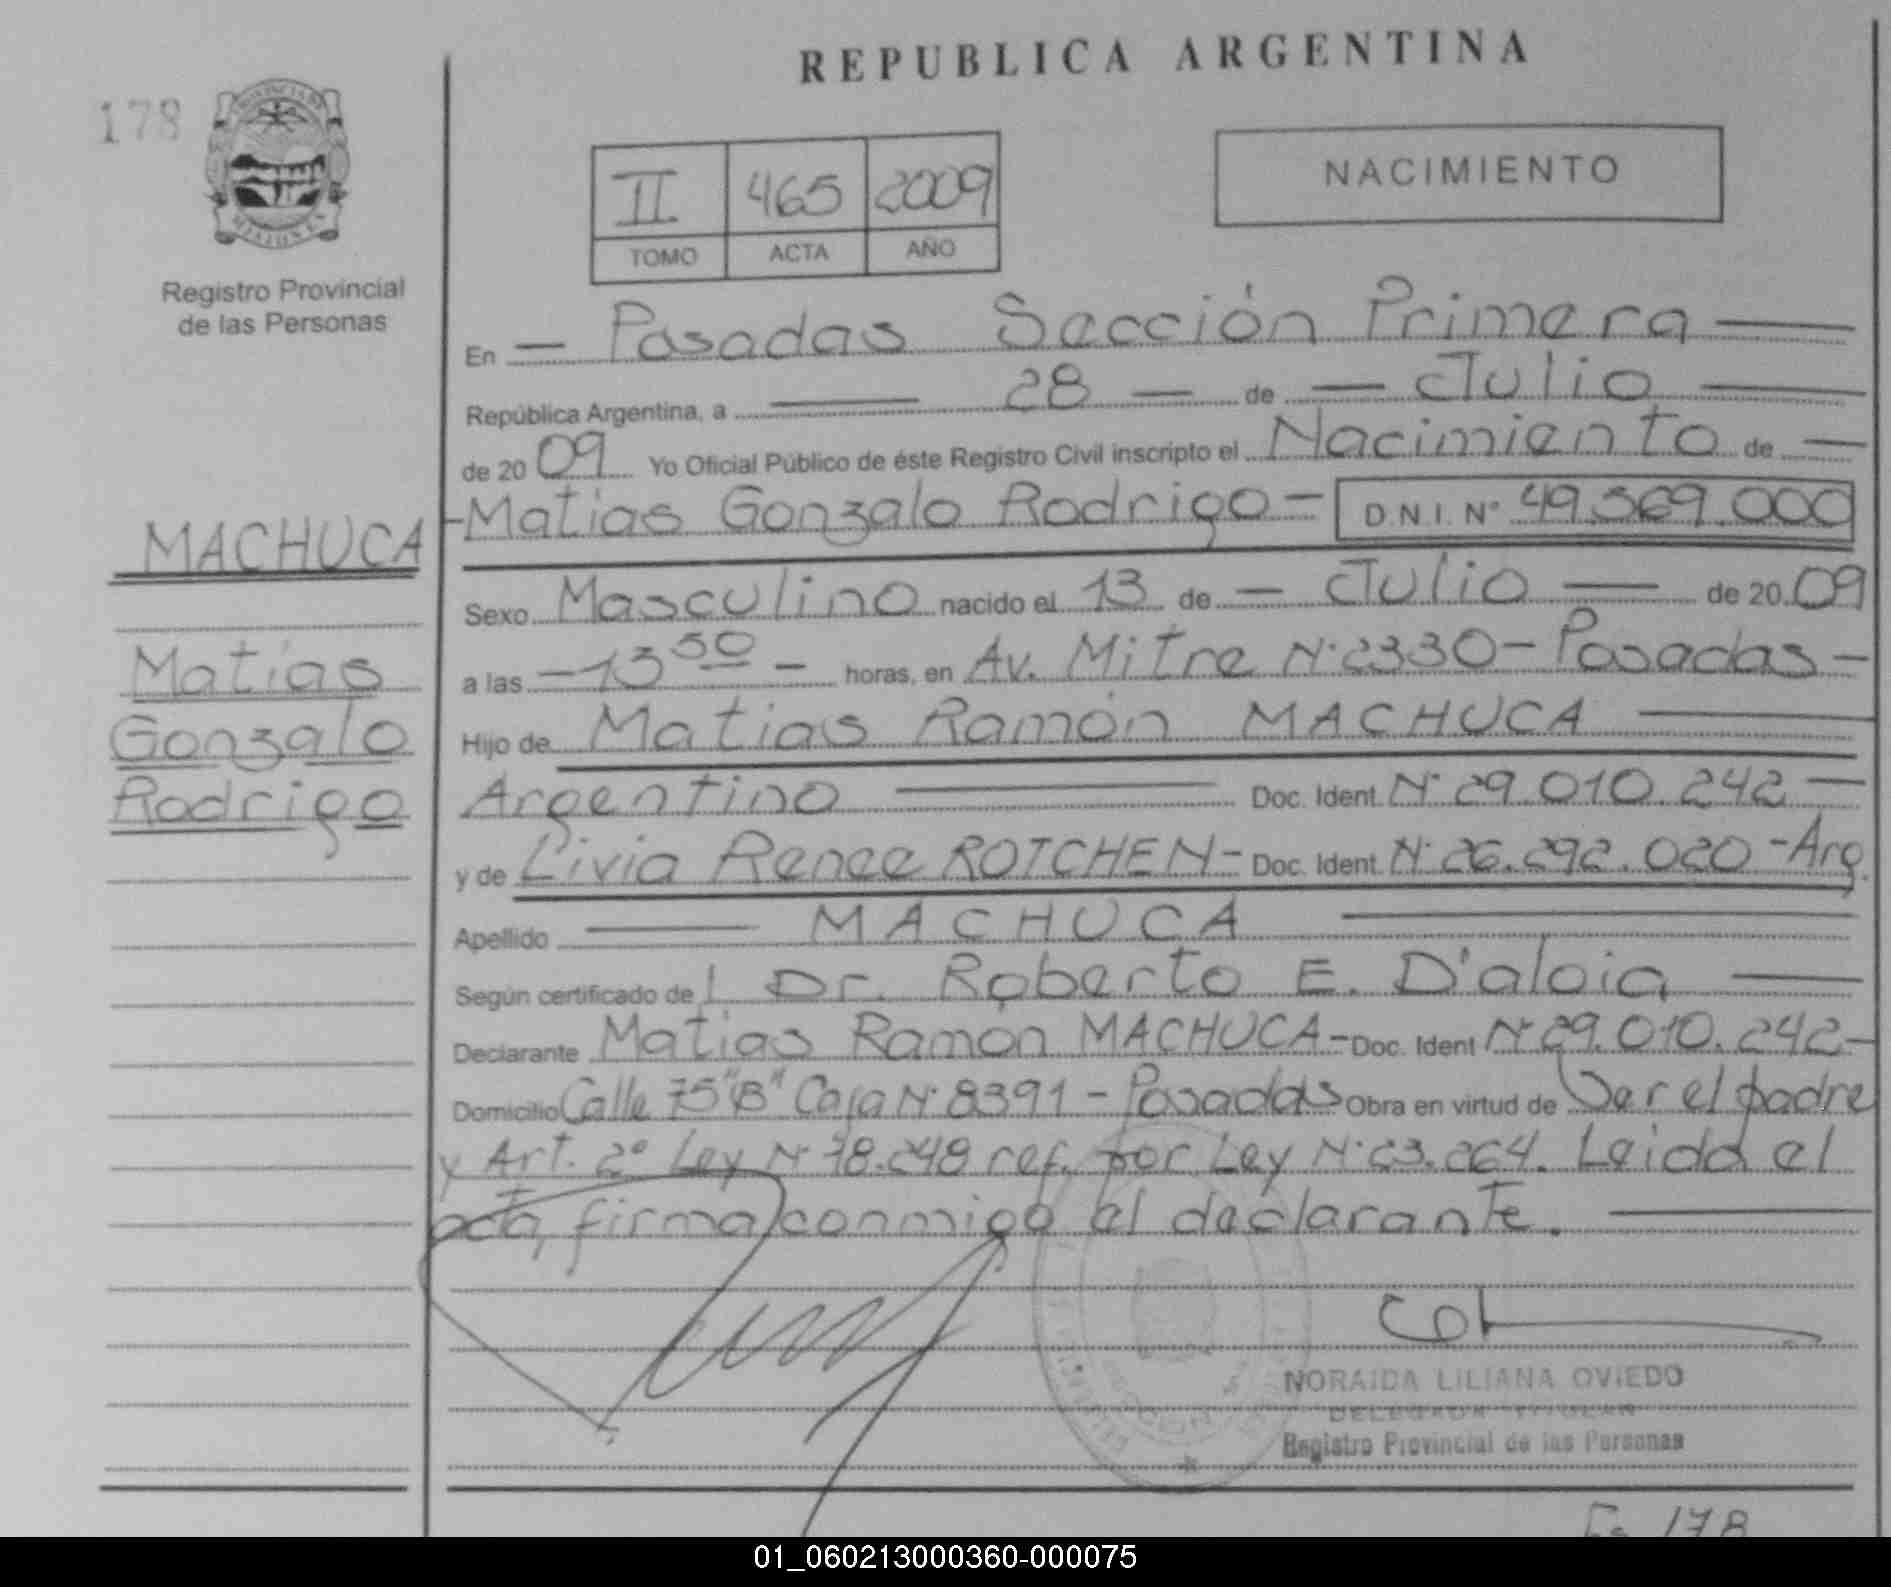 REPUBLICA ARGENTINA
178
PROVINCIA DE
MISIONES
Registro Provincial
de las Personas
II 465 2009
TOMO ACTA AÑO
NACIMIENTO
En — Posadas Sección Primera —
República Argentina, a — 28 — de — Julio —
de 2009 Yo Oficial Público de éste Registro Civil inscripto el Nacimiento de —
MACHUCA
Matías
Gonzalo
Rodrigo
- Matías Gonzalo Rodrigo - D.N.I. Nº 49.569.000
Sexo Masculino nacido el 13 de — Julio — de 2009
a las — 13 50 — horas, en Av. Mitre Nº 2330 - Posadas -
Hijo de Matias Ramón MACHUCA —
Argentino — Doc. Ident. Nº 29.010.242 —
y de Livia Renee ROTCHEN - Doc. Ident. Nº 26.292.020 - Arg.
Apellido — MACHUCA —
Según certificado de l Dr. Roberto E. D'aloia —
Declarante Matias Ramón MACHUCA - Doc. Ident Nº 29.010.242 -
Domicilio Calle 75 "B" Casa Nº 8391 - Posadas Obra en virtud de Ser el padre
y Art. 2º Ley Nº 18.248 ref. por Ley Nº 23.264. Leida el
acta, firma conmigo el declarante. —
NORAIDA LILIANA OVIEDO
DELEGADA TITULAR
Registro Provincial de las Personas
Fs 178
01_060213000360-000075